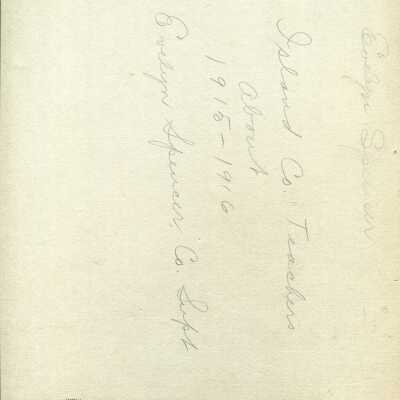 Evelyn Spencer
Island Co. Teachers
About
1915-1916
Evelyn Spencer, Co. Supt